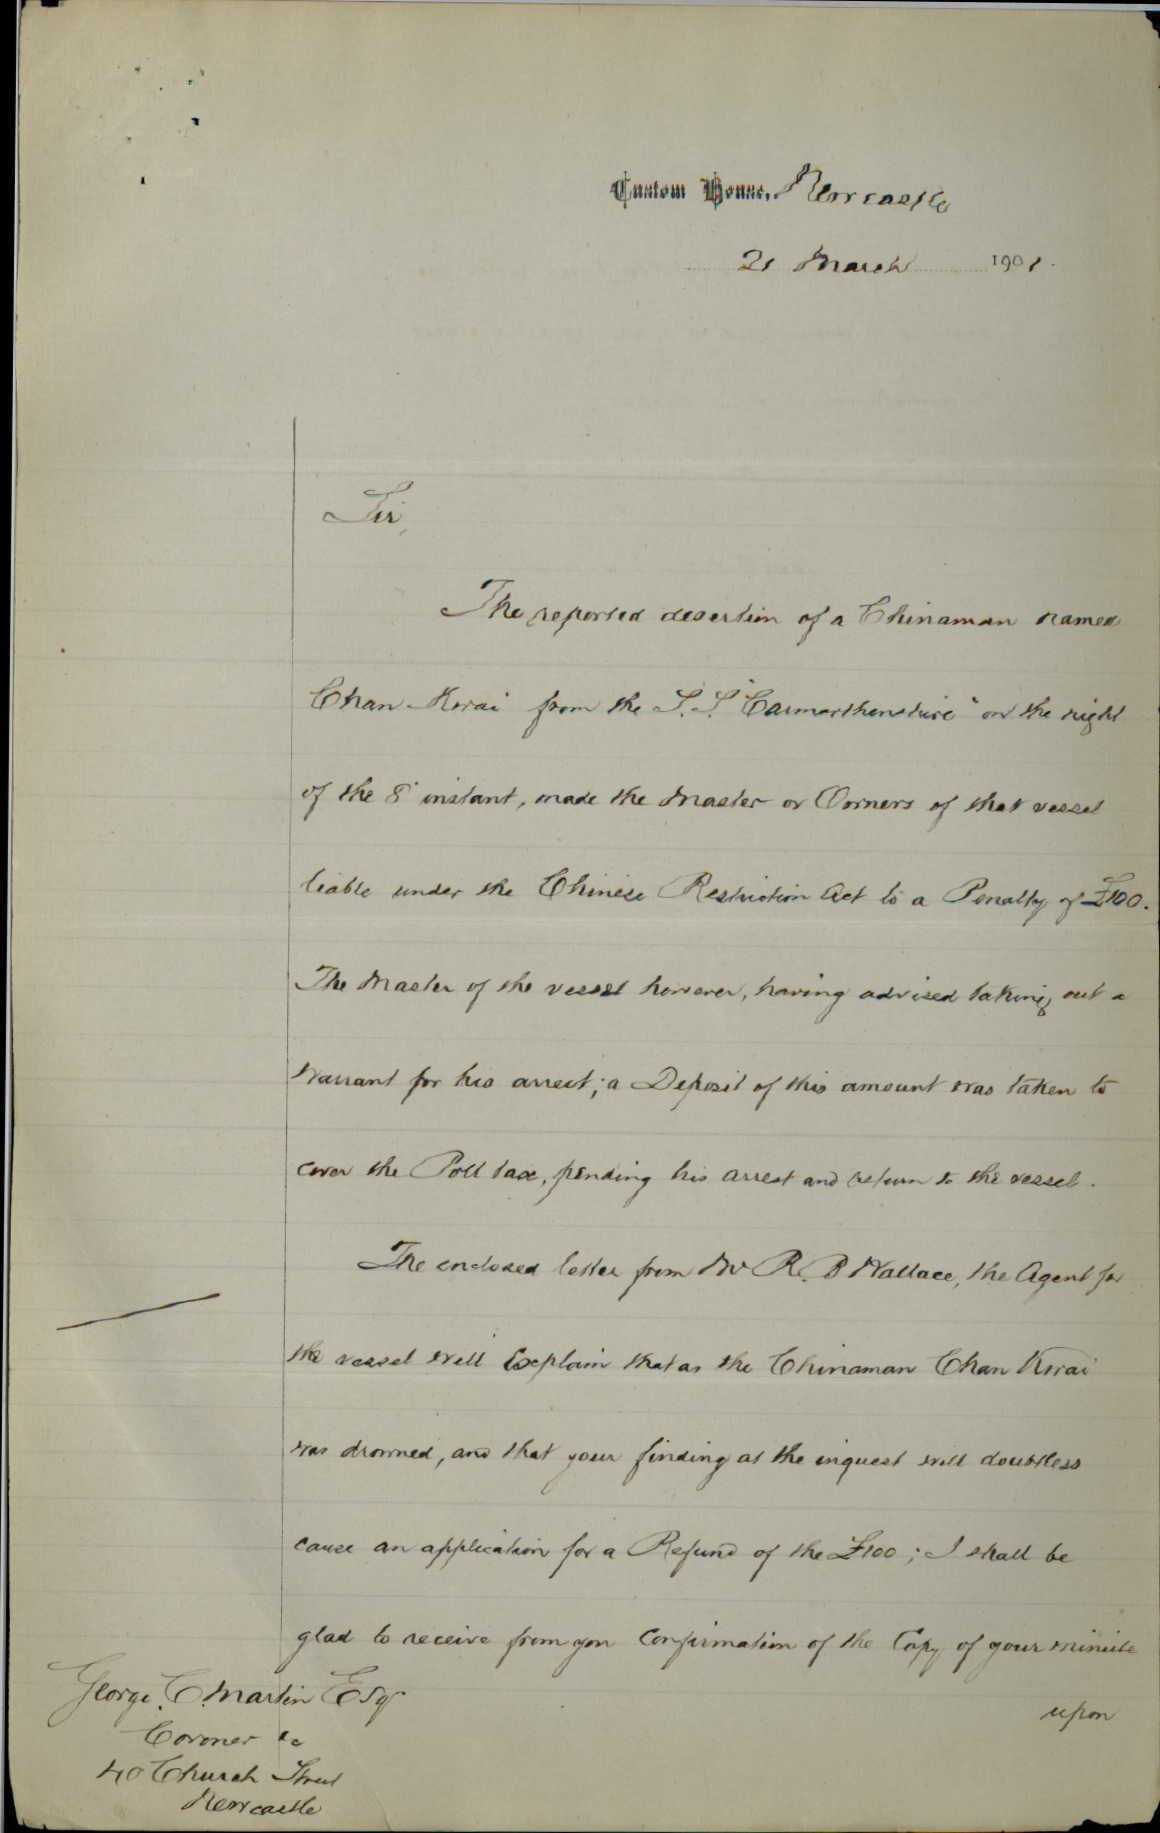 Custom House, Newcastle
21 March 1901.
Sir,
The reported desertion of a Chinaman named
Chan Kwai from the S.S. "Carmarthenshire" on the night
of the 8th instant, made the Master or Owners of that vessel
liable under the Chinese Restriction Act to a Penalty of £100.
The Master of the vessel however, having advised taking out a
warrant for his arrest; a Deposit of this amount was taken to
cover the Poll tax, pending his arrest and return to the vessel.
The enclosed letter from Mr R. B Wallace, the Agent for
the vessel will Explain that as the Chinaman Chan Kwai
was drowned, and that your finding at the inquest will doubtless
cause an application for a Refund of the £100; I shall be
glad to receive from you Confirmation of the Copy of your minute
upon
George C. Martin Esqr
Coroner &c
40 Church Street
Newcastle